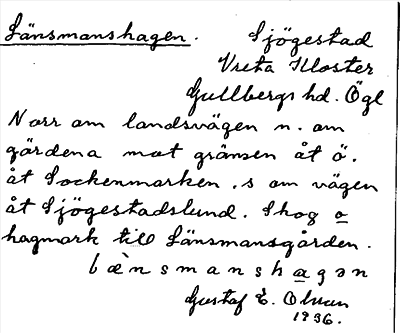 Länsmanshagen. Sjögestad
Vreta Kloster
Gullbergs hd. Ögl
Norr om landsvägen n. om
gärdena mot gränsen åt ö.
åt Sockenmarken. s om vägen
åt Sjögestadslund. Skog o
hagmark till Länsmansgården.
læ`nsmanshagən
Gustaf E. Olsson
1936.